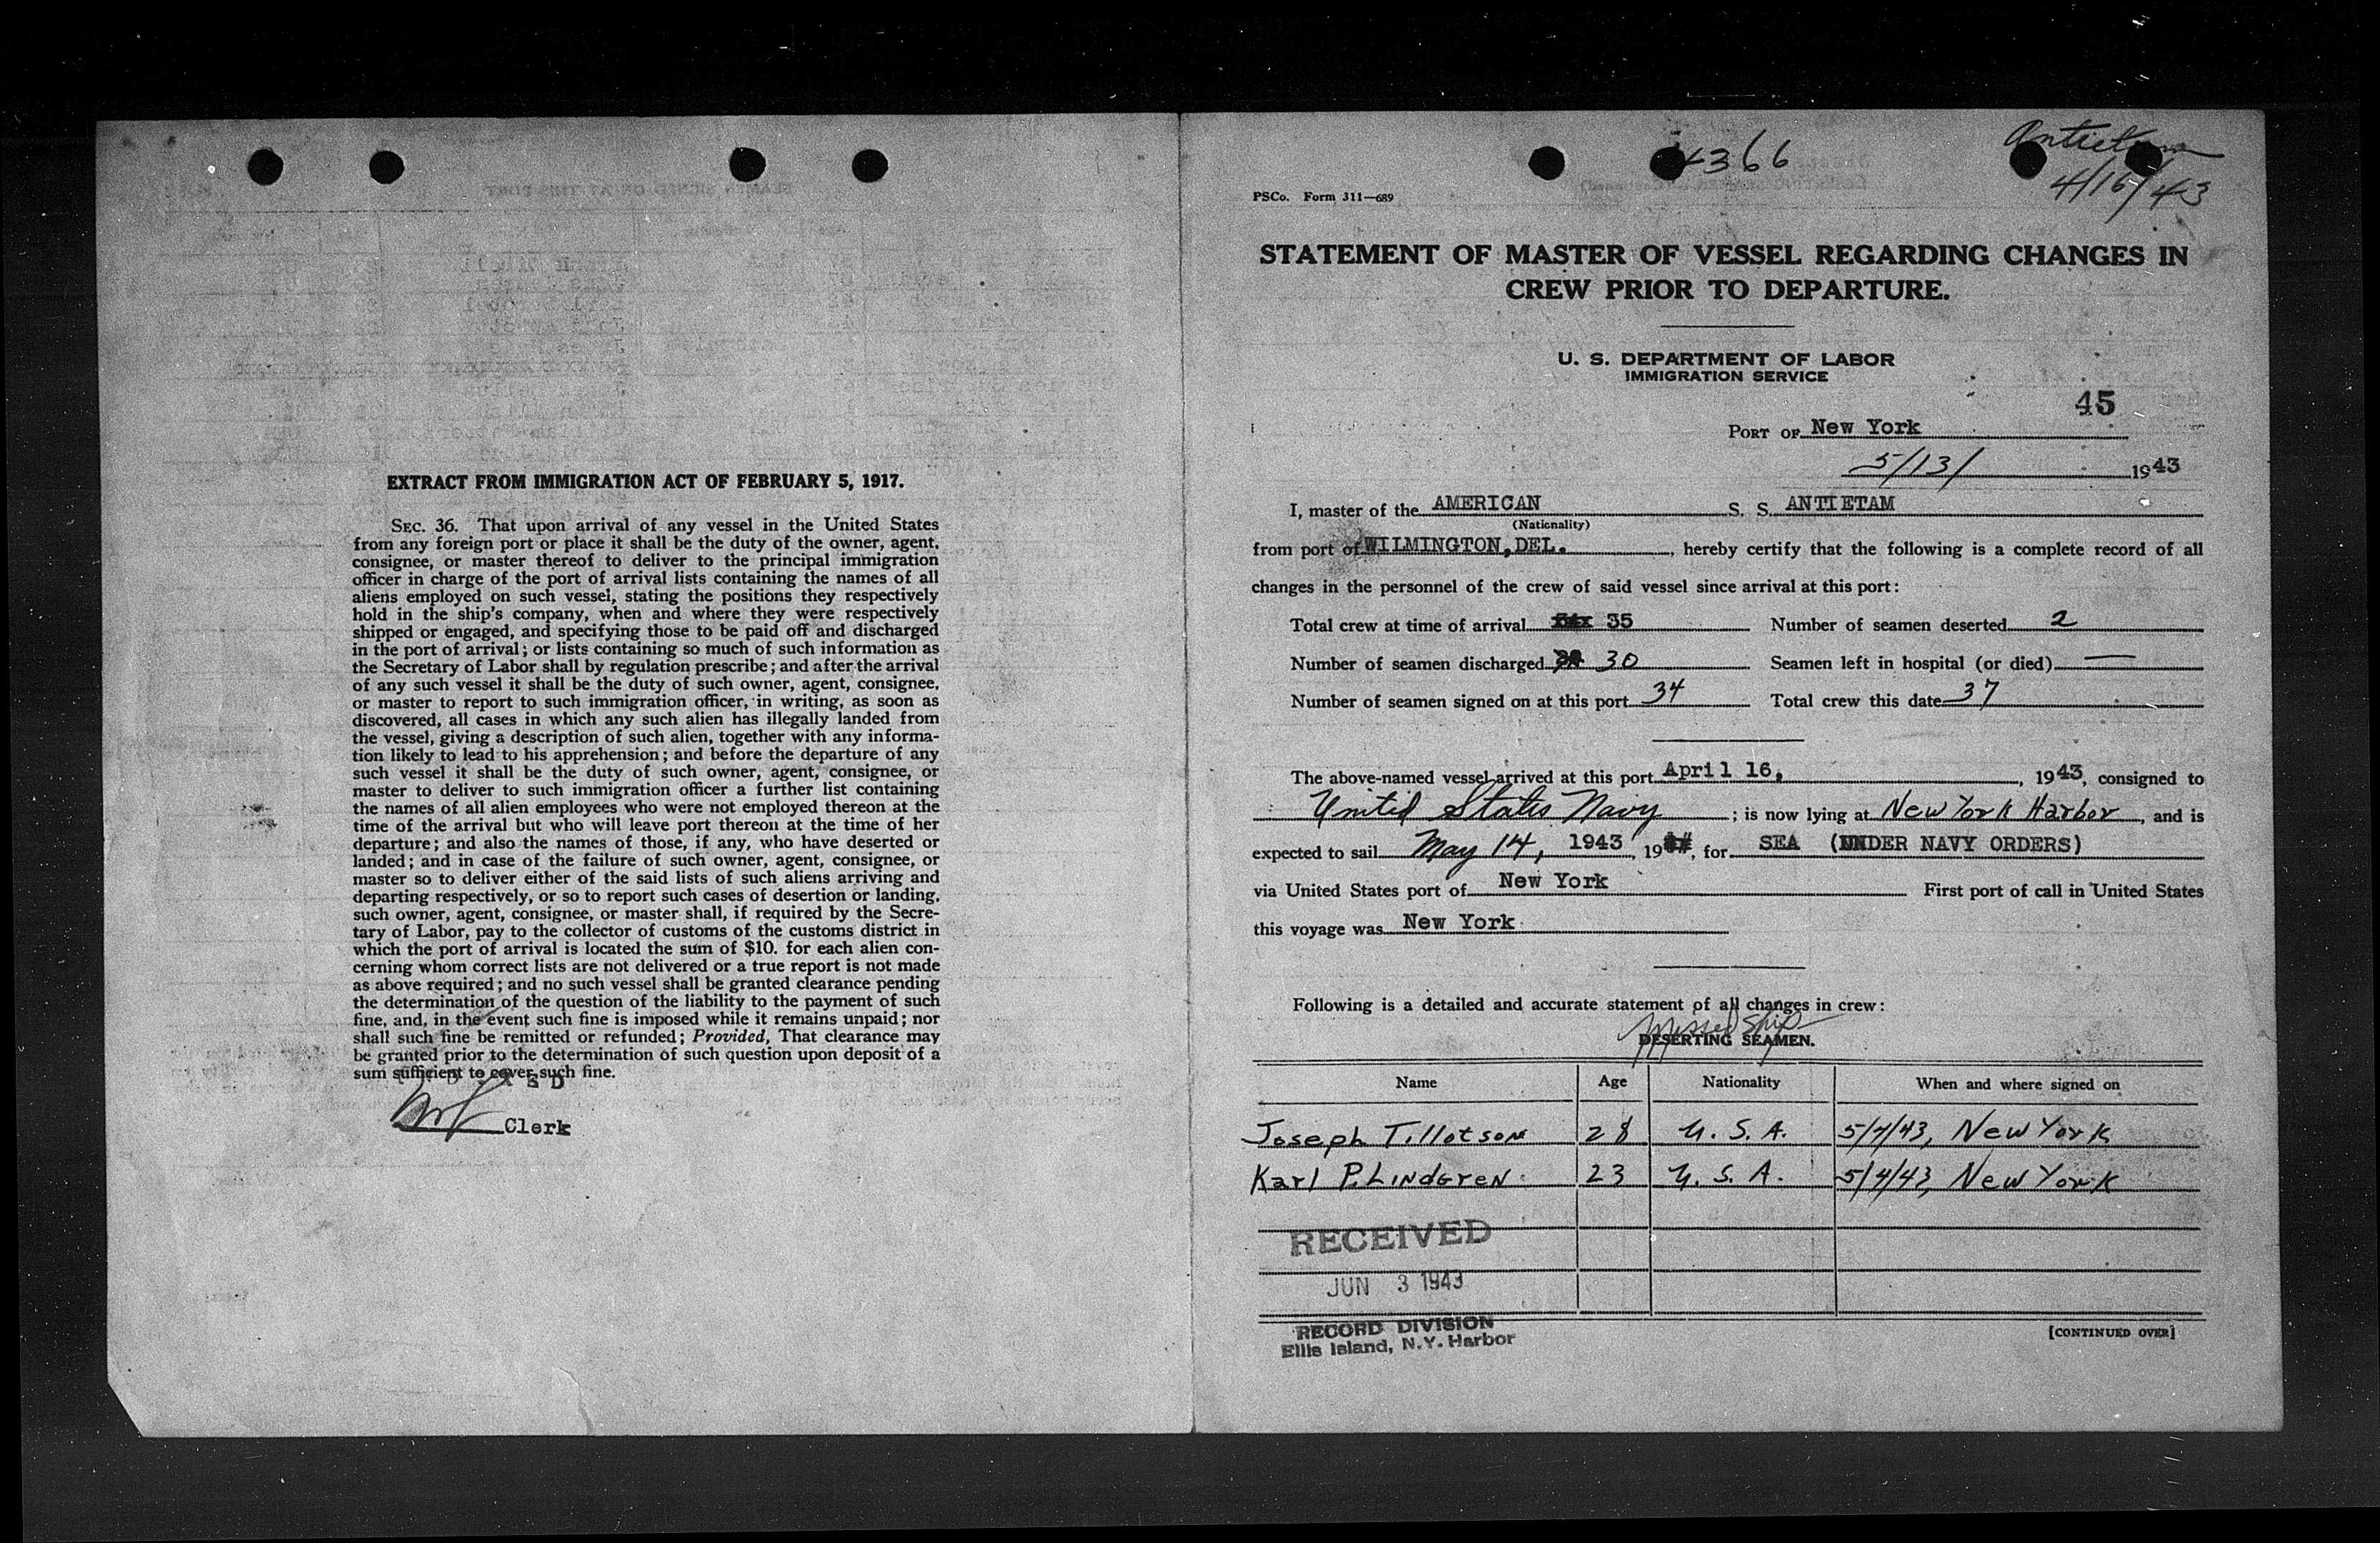 EXTRACT FROM IMMIGRATION ACT OF FEBRUARY 5, 1917.
SEC. 36. That upon arrival of any vessel in the United States
from any foreign port or place it shall be the duty of the owner, agent,
consignee, or master thereof to deliver to the principal immigration
officer in charge of the port of arrival lists containing the names of all
aliens employed on such vessel, stating the positions they respectively
hold in the ship's company, when and where they were respectively
shipped or engaged, and specifying those to be paid off and discharged
in the port of arrival; or lists containing so much of such information as
the Secretary of Labor shall by regulation prescribe; and after the arrival
of any such vessel it shall be the duty of such owner, agent, consignee,
or master to report to such immigration officer, in writing, as soon as
discovered, all cases in which any such alien has illegally landed from
the vessel, giving a description of such alien, together with any informa-
tion likely to lead to his apprehension; and before the departure of any
such vessel it shall be the duty of such owner, agent, consignee, or
master to deliver to such immigration officer a further list containing
the names of all alien employees who were not employed thereon at the
time of the arrival but who will leave port thereon at the time of her
departure; and also the names of those, if any, who have deserted or
landed; and in case of the failure of such owner, agent, consignee, or
master so to deliver either of the said lists of such aliens arriving and
departing respectively, or so to report such cases of desertion or landing,
such owner, agent, consignee, or master shall, if required by the Secre-
tary of Labor, pay to the collector of customs of the customs district in
which the port of arrival is located the sum of $10. for each alien con-
cerning whom correct lists are not delivered or a true report is not made
as above required; and no such vessel shall be granted clearance pending
the determination of the question of the liability to the payment of such
fine, and, in the event such fine is imposed while it remains unpaid; nor
shall such fine be remitted or refunded; Provided, That clearance may
be granted prior to the determination of such question upon deposit of a
sum sufficient to cover such fine.
Clerk
4366
Antietam
4/16/43
PSCo. Form 311—689
STATEMENT OF MASTER OF VESSEL REGARDING CHANGES IN
CREW PRIOR TO DEPARTURE.
U. S. DEPARTMENT OF LABOR
IMMIGRATION SERVICE
45
PORT OF New York
5/13/ 1943
I, master of the AMERICAN S. S. ANTIETAM
(Nationality)
from port of WILMINGTON, DEL. , hereby certify that the following is a complete record of all
changes in the personnel of the crew of said vessel since arrival at this port:
Total crew at time of arrival 35 Number of seamen deserted 2
Number of seamen discharged 30 Seamen left in hospital (or died) —
Number of seamen signed on at this port 34 Total crew this date 37
The above-named vessel arrived at this port April 16, , 1943, consigned to
United States Navy ; is now lying at New York Harbor , and is
expected to sail May 14, 1943 , 19 , for SEA (UNDER NAVY ORDERS)
via United States port of New York First port of call in United States
this voyage was New York
Following is a detailed and accurate statement of all changes in crew:
Missed Ship
DESERTING SEAMEN.
Name Age Nationality When and where signed on
Joseph Tillotson 28 U. S. A. 5/7/43, New York
Karl P. Lindgren 23 U. S. A. 5/4/43, New York
RECEIVED
JUN 3 1943
RECORD DIVISION
Ellis Island, N.Y. Harbor
[CONTINUED OVER]